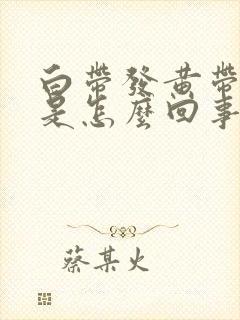 白帶發黃帶
是怎麼回事
蔡某火